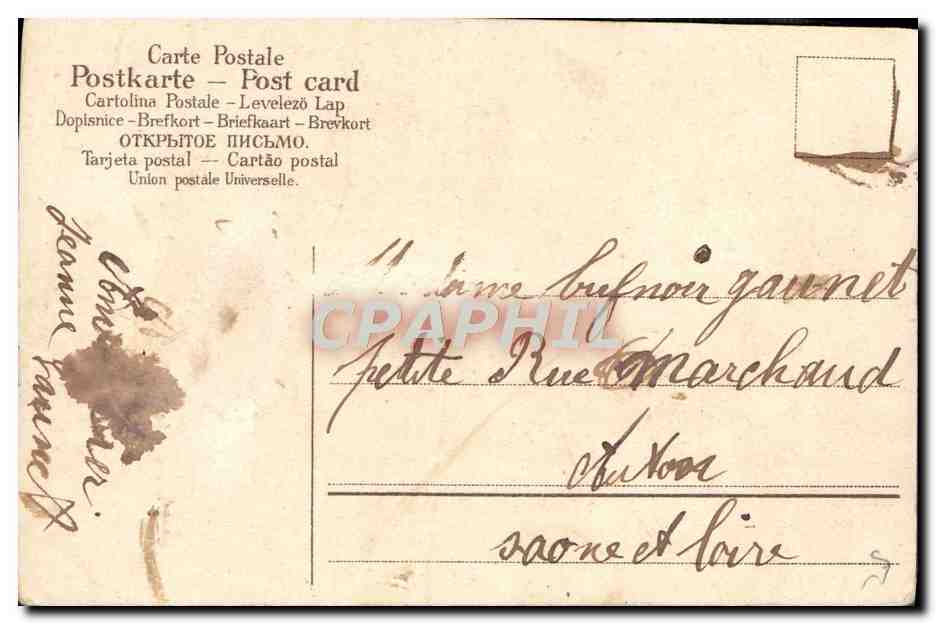 Carte Postale
Postkarte — Post card
Cartolina Postale – Levelezö Lap
Dopisnice – Brefkort – Briefkaart – Brevkort
ОТКРЫТОЕ ПИСЬМО.
Tarjeta postal — Cartão postal
Union postale Universelle.
Jeanne gaunet
Madame bufnoir gaunet
petite Rue Marchaud
Autun
saone et loire
CPAPHIL